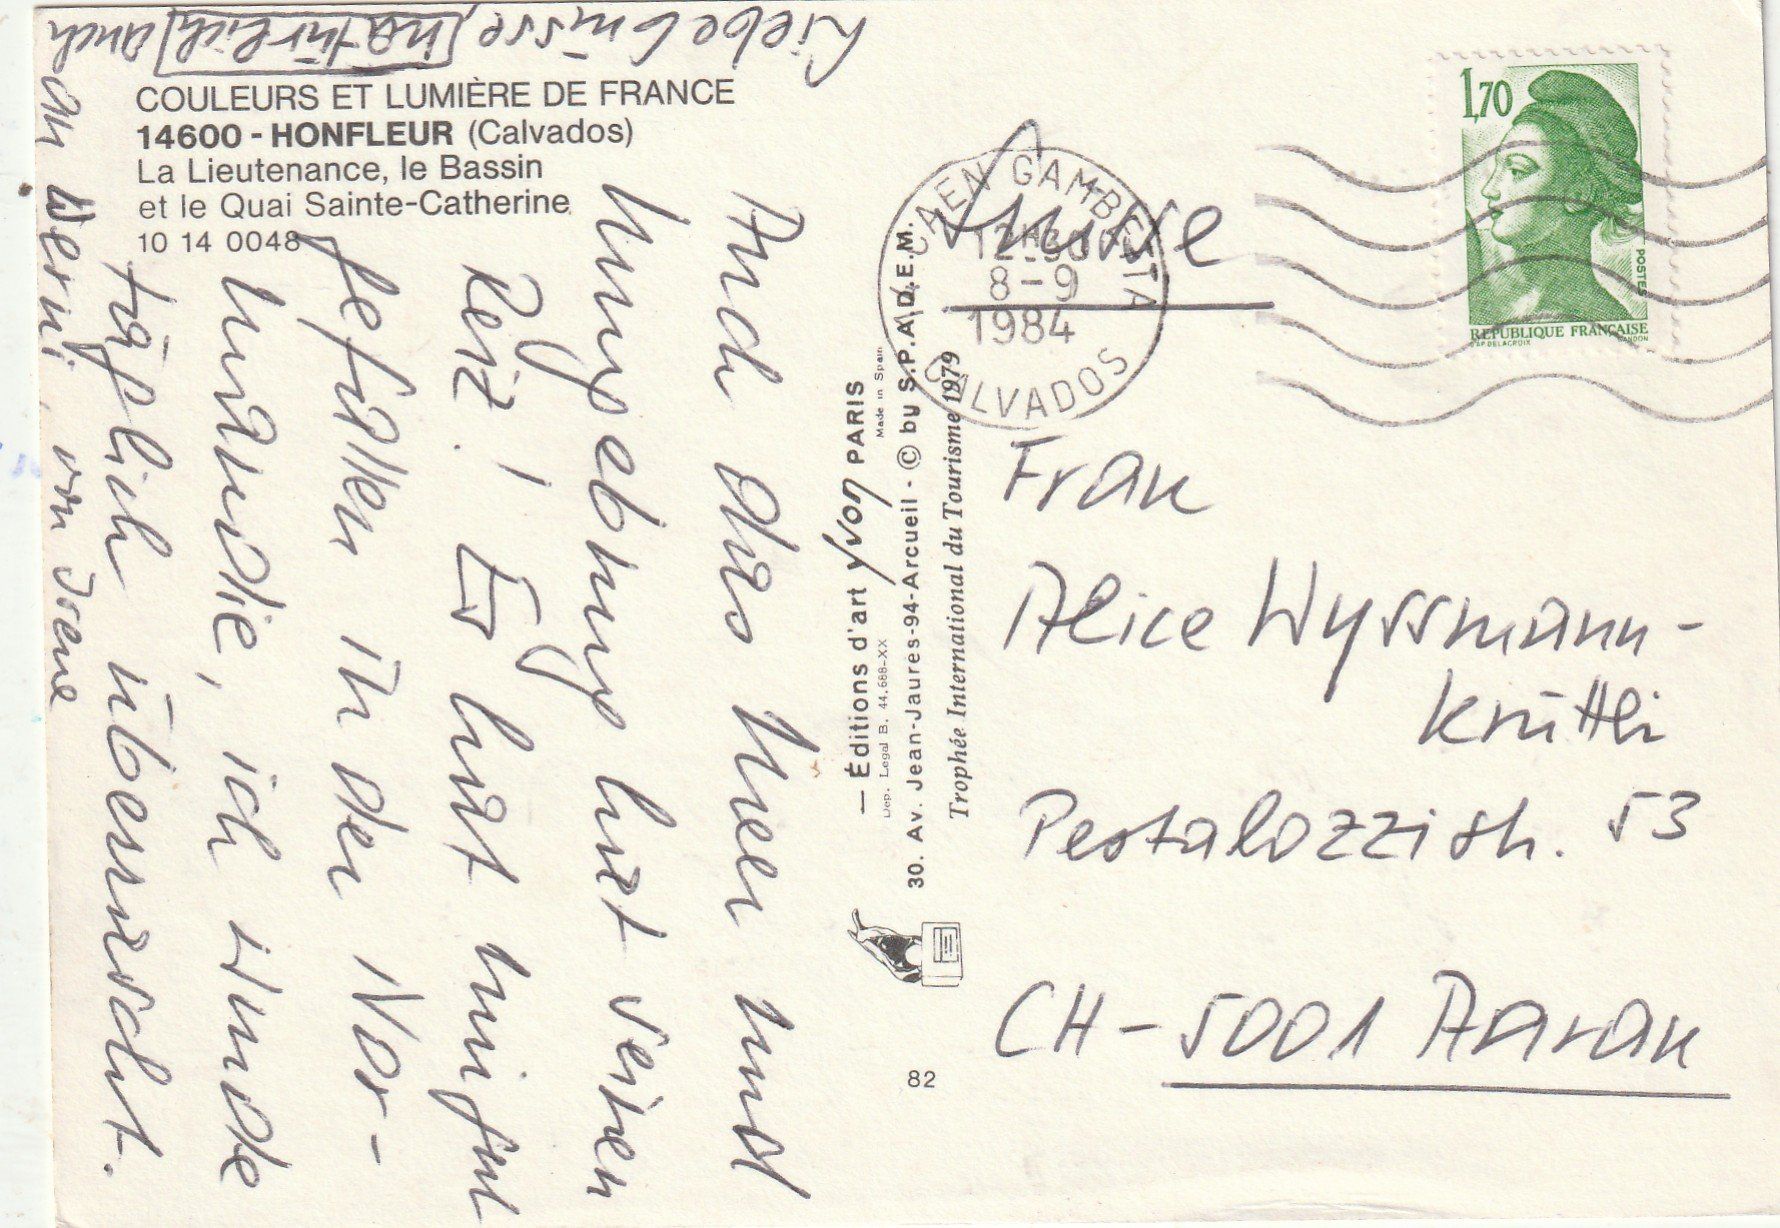 COULEURS ET LUMIÈRE DE FRANCE
14600 - HONFLEUR (Calvados)
La Lieutenance, le Bassin
et le Quai Sainte-Catherine
10 14 0048
Auch das Meer und
Umgebung hat seinen
Reiz! Es hat mir gut
gefallen in der Nor-
mandie, ich wurde
täglich überrascht.
Liebe Grüsse, natürlich auch
an Werni, von Irene
— Éditions d'art yvon PARIS
Made in Spain
Dep. Legal B. 44.688-XX
30. Av. Jean-Jaures-94-Arcueil - © by S.P.A.D.E.M.
Trophée International du Tourisme 1979
82
CAEN GAMBETTA
8-9
1984
CALVADOS
1,70
POSTES
REPUBLIQUE FRANÇAISE
D'AP. DELACROIX
GANDON
Suisse
Frau
Alice Wyssmann-
Krüttli
Pestalozzistr. 53
CH-5001 Aarau